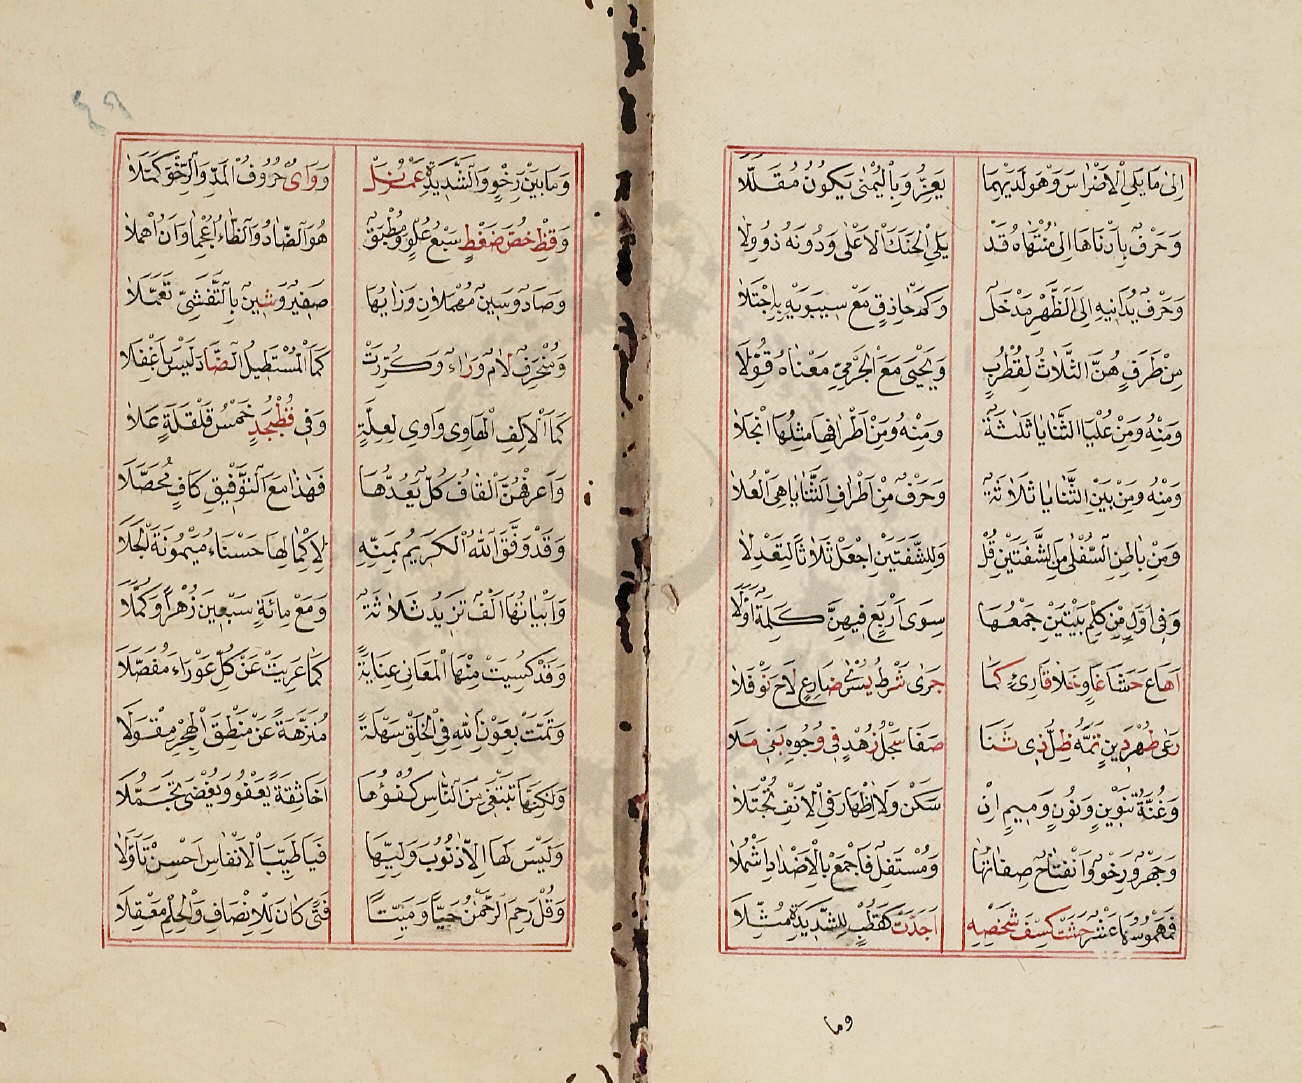 اِلىٰ مَا يَلِى الْاَضْرَاسَ وَهْوَ لَدَيْهِمَا يَعِزُّ وَبِالْيُمْنىٰ يَكُونُ مُقَلَّلَا
وَحَرْفٌ بِاَدْنَاهَا اِلىٰ مُنْتَهَاهُ قَدْ يَلِى الْحَنَكَ الْاَعْلىٰ وَدُونَهُ ذُو وِلَا
وَحَرْفٌ يُدَانِيهِ اِلَى الظَّهْرِ مَدْخَلٌ وَكَمْ حَاذِقٍ مَعْ سِيبَوَيْهِ بِهِ اجْتَلَا
مِنْ طَرَفٍ هُنَّ الثَّلَاثُ لِقُطْرُبٍ وَيَحْيىٰ مَعَ الْجَرْمِىِّ مَعْنَاهُ قُوِّلَا
وَمِنْهُ وَمِنْ عُلْيَا الثَّنَايَا ثَلٰثَةٌ وَمِنْهُ وَمِنْ اَطْرَافِهَا مِثْلُهَا انْجَلَا
وَمِنْهُ وَمِنْ بَيْنِ الثَّنَايَا ثَلَاثَةٌ وَحَرْفٌ مِنْ اَطْرَافِ الثَّنَايَا هِىَ الْعُلَا
وَمِنْ بَاطِنِ السُّفْلىٰ مِنَ الشَّفَتَيْنِ قُلْ وَلِلشَّفَتَيْنِ اجْعَلْ ثَلَاثًا لِتَعْدِلَا
وَفِى اَوَّلٍ مِنْ كِلْمِ بَيْتَيْنِ جَمْعُهَا سِوَى اَرْبَعٍ فِيهِنَّ كِلْمَةٌ اَوَّلَا
اَهَاعَ حَشَا غَاوٍ خَلَا قَارِىءٍ كَمَا جَرىٰ شَرْطُ يُسْرىٰ ضَارِعٍ لَاحَ نَوْفَلَا
رَعىٰ طُهْرَ دِينٍ تَمَّهُ ظِلُّ ذِى ثَنَا صَفَا سَجْلُ زُهْدٍ فِى وُجُوهِ بَنِى مَلَا
وَغُنَّةُ تَنْوِينٍ وَنُونٍ وَمِيمٍ اِنْ سَكَنَّ وَلَا اِظْهَارَ فِى الْاَنْفِ تُجْتَلَا
وَجَهْرٌ وَرَخْوٌ وَانْفِتَاحٌ صِفَاتُهَا وَمُسْتَفِلٌ فَاجْمَعْ بِالْاَضْدَادِ اشْمُلَا
فَمَهْمُوسُهَا عَشْرٌ حَثَتْ كِسْفَ شَخْصِهِ اَجَدَّتْ كَقُطْبٍ لِلشَّدِيدَةِ مُثِّلَا
وما
وَمَا بَيْنَ رَخْوٍ وَالشَّدِيدَةِ عَمْرُنَلْ وَوَاىٌ حُرُوفُ الْمَدِّ وَالرَّخْوَ كَمَّلَا
وَقِظْ خُصَّ ضَغْطٍ سَبْعُ عُلْوٍ وَمُطْبَقٌ هُوَ الضَّادُ وَالظَّاءُ اُعْجِمَا وَاِنْ اُهْمِلَا
وَصَادٌ وَسِينٌ مُهْمَلَانِ وَزَايُهَا صَفِيرٌ وَشِينٌ بِالتَّفَشِّى تَعَمَّلَا
وَمُنْحَرِفٌ لَامٌ وَرَاءٌ وَكُرِّرَتْ كَمَا الْمُسْتَطِيلُ الضَّادُ لَيْسَ بِاَغْفَلَا
كَمَا الْاَلِفُ الْهَاوِى وَاوِى لِعِلَّةٍ وَفِى قُطْبُجَدٍ خَمْسُ قَلْقَلَةٍ عَلَا
وَاَعْرَفُهُنَّ الْقَافُ كُلٌّ يَعُدُّهَا فَهٰذَا مَعَ التَّوْفِيقِ كَافٍ مُحَصَّلَا
وَقَدْ وَفَّقَ اللّٰهُ الْكَرِيمُ بِمَنِّهِ لِاِكْمَالِهَا حَسْنَاءَ مَيْمُونَةَ الْجَلَا
وَاَبْيَاتُهَا اَلْفٌ تَزِيدُ ثَلَاثَةٌ وَمَعْ مِائَةٍ سَبْعِينَ زُهْرًا وَكُمَّلَا
وَقَدْ كُسِيَتْ مِنْهَا الْمَعَانِى عِنَايَةً كَمَا عَرِيَتْ عَنْ كُلِّ عَوْرَاءَ مِفْصَلَا
وَتَمَّتْ بِعَوْنِ اللّٰهِ فِى الْخَلْقِ سَهْلَةً مُنَزَّهَةً عَنْ مَنْطِقِ الْهُجْرِ مِقْوَلَا
وَلٰكِنَّهَا تَبْغِى مِنَ النَّاسِ كُفْؤَهَا اَخَا ثِقَةً يَعْفُو وَيُغْضِى تَجَمُّلَا
وَلَيْسَ لَهَا اِلَّا ذُنُوبُ وَلِيِّهَا فَيَا طَيِّبَ الْاَنْفَاسِ اَحْسِنْ تَاَوُّلَا
وَقُلْ رَحِمَ الرَّحْمٰنُ حَيًّا وَمَيِّتًا فَتًى كَانَ لِلْاِنْصَافِ وَالْحِلْمِ مَعْقِلَا